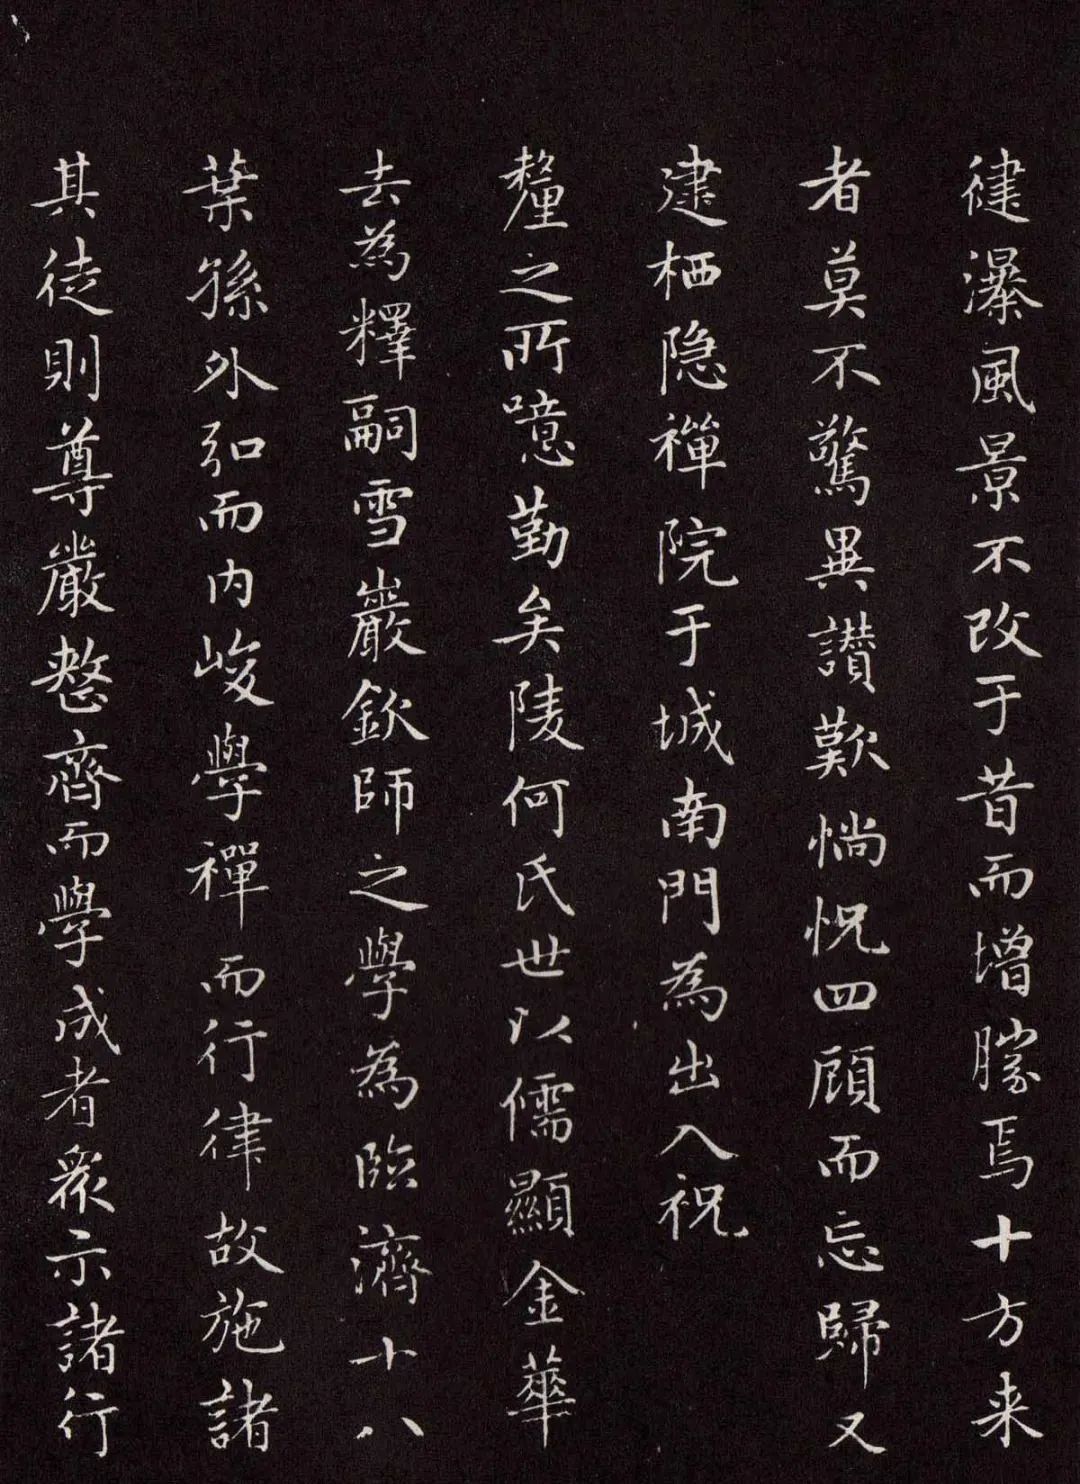 健瀑風景不改于昔而增勝焉十方来
者莫不驚異讃歎惝怳四顧而忘歸又
建栖隐禪院于城南門為出入祝
釐之所噫勤矣陵何氏世以儒顯金華
去為釋嗣雪巖欽師之學為臨濟十八
葉孫外弘而内峻學禪而行律故施諸
其徒則尊嚴整齊而學成者衆示諸行